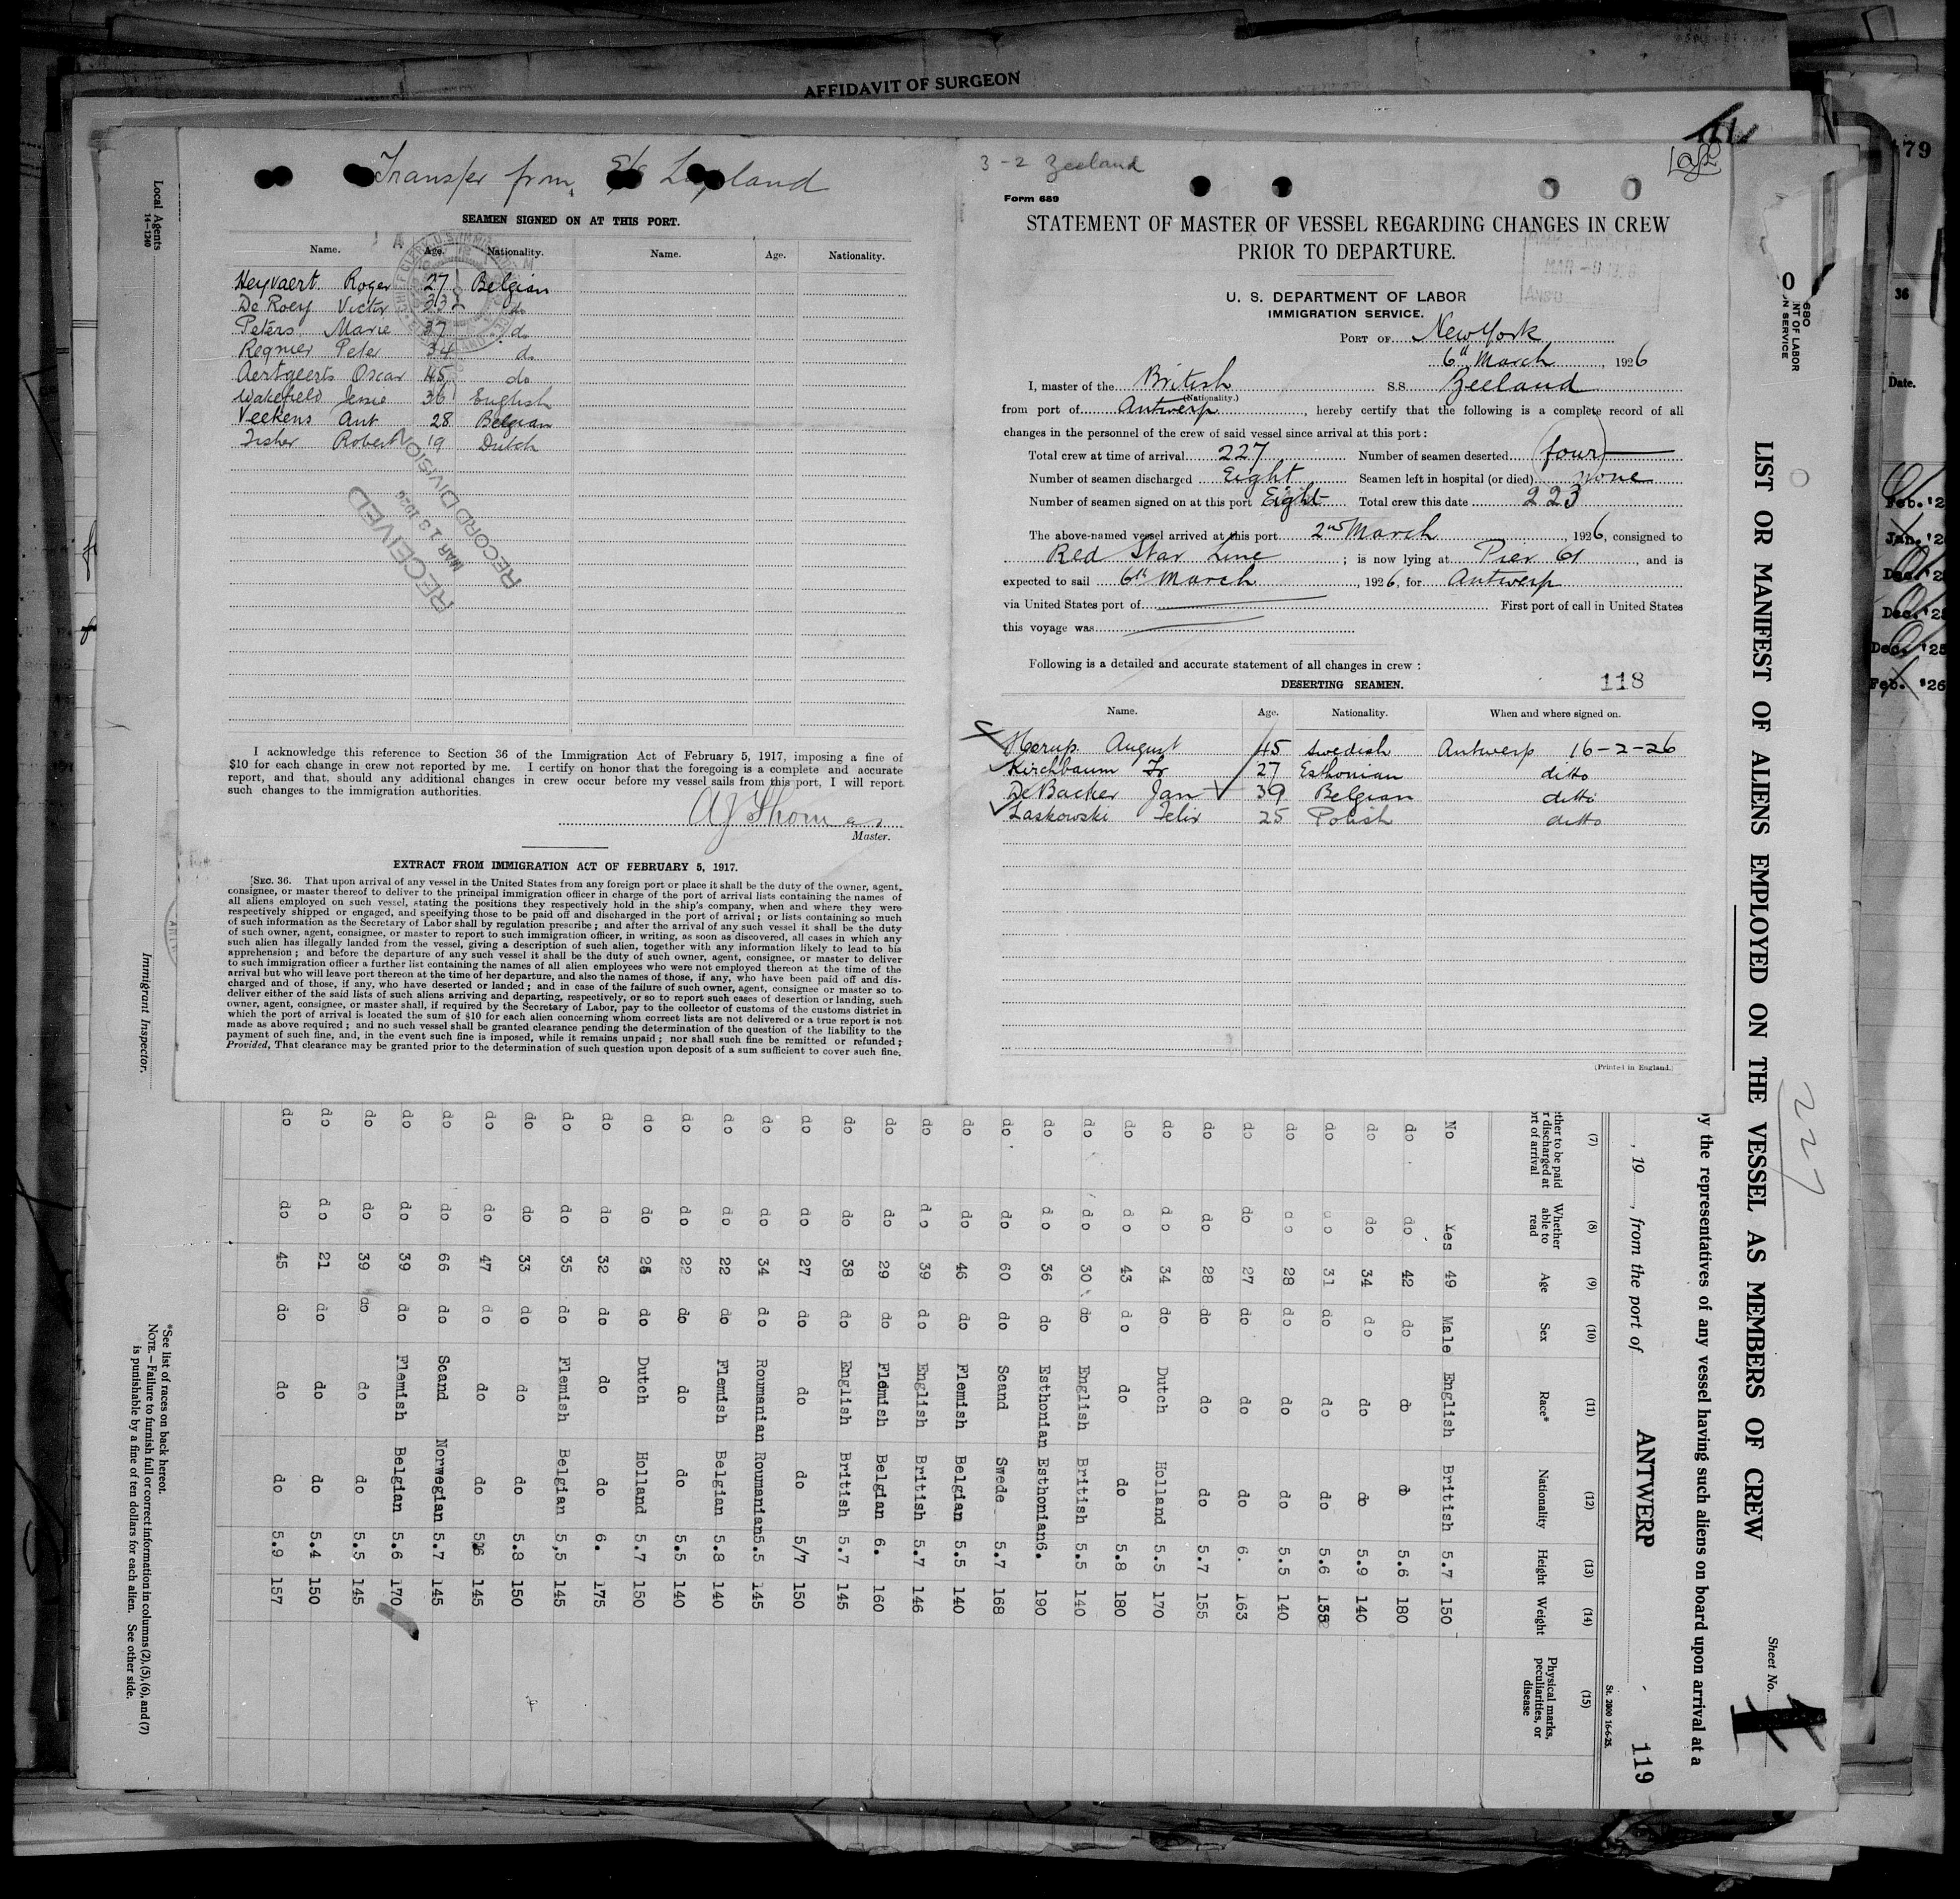 AFFIDAVIT OF SURGEON
Transfer from S/s Lapland
SEAMEN SIGNED ON AT THIS PORT.
Name. Age. Nationality. Name. Age. Nationality.
Heyvaert Roger 27 Belgian
De Roey Victor 33 do
Peters Marie 37 do
Regnier Peter 34 do
Aertgeerts Oscar 45 do
Wakefield Jessie 36 English
Veekens Ant 28 Belgian
Fisher Robert 19 Dutch
RECEIVED
MAR 13 1926
RECORD DIVISION
I acknowledge this reference to Section 36 of the Immigration Act of February 5, 1917, imposing a fine of
$10 for each change in crew not reported by me. I certify on honor that the foregoing is a complete and accurate
report, and that, should any additional changes in crew occur before my vessel sails from this port, I will report
such changes to the immigration authorities.
A J Thomas
Master.
EXTRACT FROM IMMIGRATION ACT OF FEBRUARY 5, 1917.
[SEC. 36. That upon arrival of any vessel in the United States from any foreign port or place it shall be the duty of the owner, agent,
consignee, or master thereof to deliver to the principal immigration officer in charge of the port of arrival lists containing the names of
all aliens employed on such vessel, stating the positions they respectively hold in the ship's company, when and where they were
respectively shipped or engaged, and specifying those to be paid off and discharged in the port of arrival; or lists containing so much
of such information as the Secretary of Labor shall by regulation prescribe; and after the arrival of any such vessel it shall be the duty
of such owner, agent, consignee, or master to report to such immigration officer, in writing, as soon as discovered, all cases in which any
such alien has illegally landed from the vessel, giving a description of such alien, together with any information likely to lead to his
apprehension; and before the departure of any such vessel it shall be the duty of such owner, agent, consignee, or master to deliver
to such immigration officer a further list containing the names of all alien employees who were not employed thereon at the time of the
arrival but who will leave port thereon at the time of her departure, and also the names of those, if any, who have been paid off and dis-
charged and of those, if any, who have deserted or landed; and in case of the failure of such owner, agent, consignee or master so to
deliver either of the said lists of such aliens arriving and departing, respectively, or so to report such cases of desertion or landing, such
owner, agent, consignee, or master shall, if required by the Secretary of Labor, pay to the collector of customs of the customs district in
which the port of arrival is located the sum of $10 for each alien concerning whom correct lists are not delivered or a true report is not
made as above required; and no such vessel shall be granted clearance pending the determination of the question of the liability to the
payment of such fine, and, in the event such fine is imposed, while it remains unpaid; nor shall such fine be remitted or refunded;
Provided, That clearance may be granted prior to the determination of such question upon deposit of a sum sufficient to cover such fine.
3-2 Zeeland
Form 689
STATEMENT OF MASTER OF VESSEL REGARDING CHANGES IN CREW
PRIOR TO DEPARTURE.
U. S. DEPARTMENT OF LABOR
IMMIGRATION SERVICE.
PORT OF New York
6th March, 1926
I, master of the British S.S. Zeeland
(Nationality.)
from port of Antwerp, hereby certify that the following is a complete record of all
changes in the personnel of the crew of said vessel since arrival at this port:
Total crew at time of arrival 227 Number of seamen deserted four
Number of seamen discharged Eight Seamen left in hospital (or died) none
Number of seamen signed on at this port Eight Total crew this date 223
The above-named vessel arrived at this port 2nd March, 1926, consigned to
Red Star Line; is now lying at Pier 61, and is
expected to sail 6th March, 1926, for Antwerp
via United States port of First port of call in United States
this voyage was
Following is a detailed and accurate statement of all changes in crew:
DESERTING SEAMEN. 118
Name. Age. Nationality. When and where signed on.
August 45 Swedish Antwerp 16-2-26
Kirchbaum Fr 27 Esthonian ditto
De Backer Jan 39 Belgian ditto
Laskowski Felix 25 Polish ditto
(Printed in England.)
Local Agents
14-1240
Immigrant Inspector.
LIST OR MANIFEST OF ALIENS EMPLOYED ON THE VESSEL AS MEMBERS OF CREW
227
Sheet No. 1
by the representatives of any vessel having such aliens on board upon arrival at a
, 19 , from the port of ANTWERP 119
St. 2000 16-6-25.
(7) (8) (9) (10) (11) (12) (13) (14) (15)
Whether able to read Age Sex Race* Nationality Height Weight Physical marks, peculiarities, or disease
No Yes 49 Male English British 5.7 150
do do 42 do do do 5.6 180
do do 34 do do do 5.9 140
do do 31 do do do 5.6
do do 28 do do do 5.5 140
do do 27 do do do 6. 163
do do 28 do do do 5.7 155
do do 34 do Dutch Holland 5.5 170
do do 43 do do do 5.8 180
do do 30 do English British 5.5 140
do do 36 do Esthonian Esthonian 6. 190
do do 60 do Scand Swede 5.7 168
do do 46 do Flemish Belgian 5.5 140
do do 39 do English British 5.7 146
do do 29 do Flemish Belgian 6. 160
do do 38 do English British 5.7 145
do do 27 do do do 5/7 150
do do 34 do Roumanian Roumanian 5.5 145
do do 22 do Flemish Belgian 5.8 140
do do 22 do do do 5.5 140
do do do Dutch Holland 5.7 150
do do 32 do do do 6. 175
do do 35 do Flemish Belgian 5,5 145
do do 33 do do do 5.8 150
do do 47 do do do 145
do do 66 do Scand Norwegian 5.7 145
do do 39 do Flemish Belgian 5.6 170
do do 39 do do do 5.5 145
do do 21 do do do 5.4 150
do do 45 do do do 5.9 157
*See list of races on back hereof.
NOTE.—Failure to furnish full or correct information in columns (2), (5), (6), and (7)
is punishable by a fine of ten dollars for each alien. See other side.
179
36
Date.
Feb. '2
Jan. '2
Dec. '2
Dec. '25
Dec. '25
Feb. '26